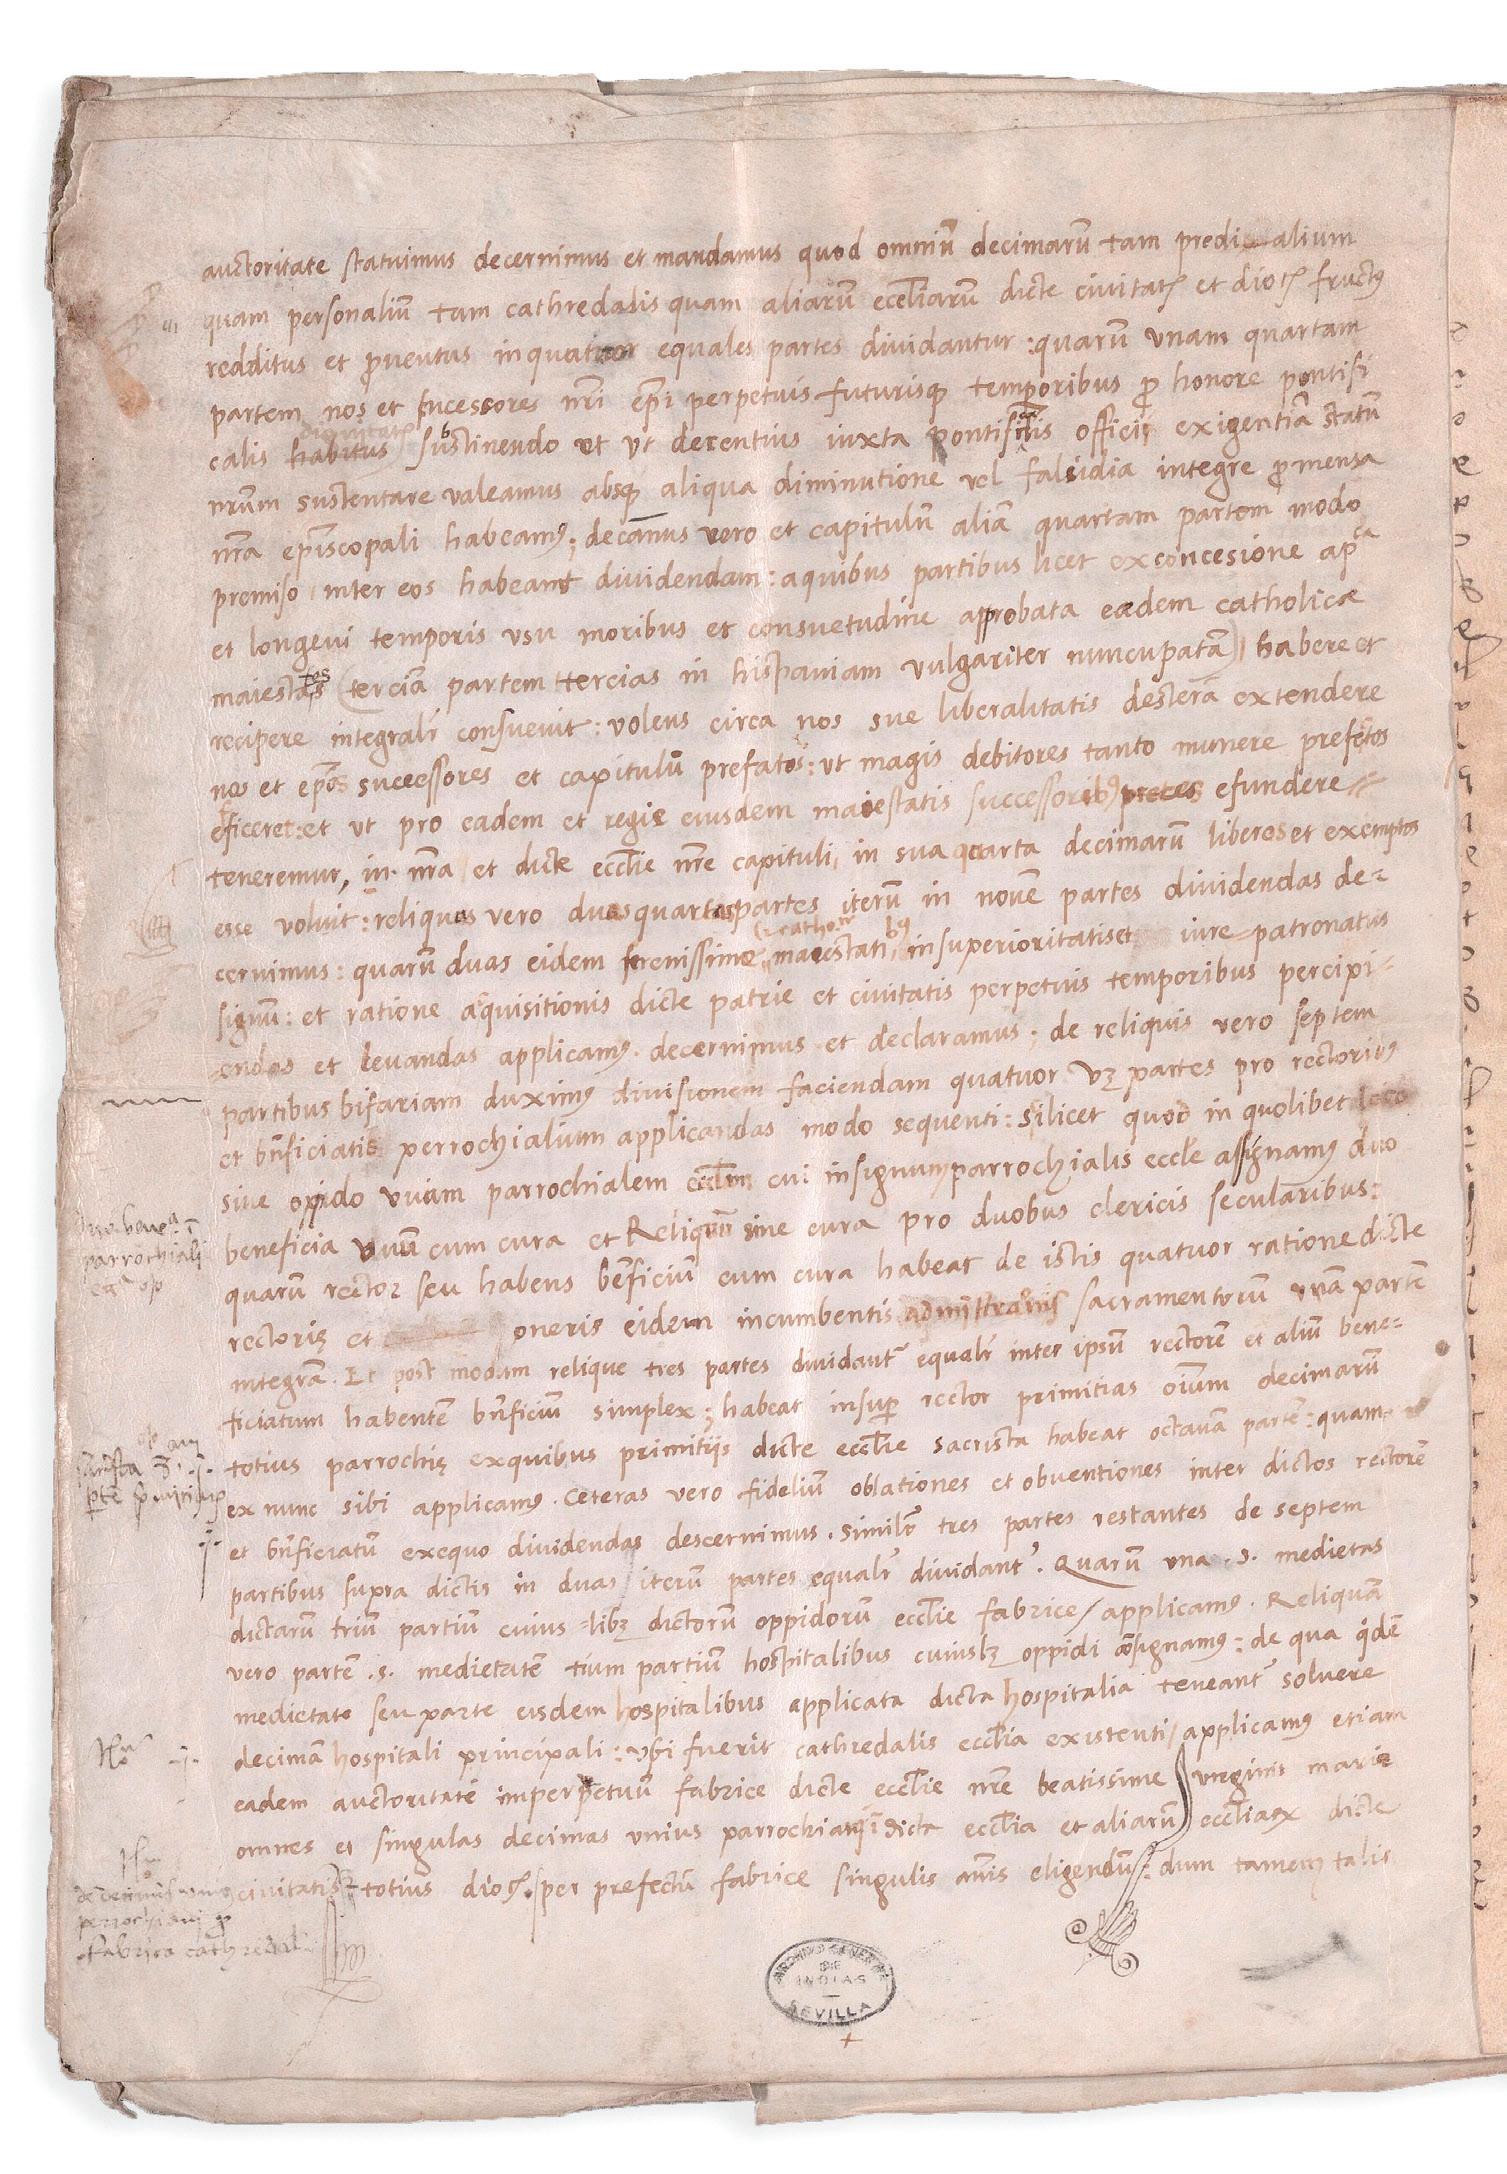 auctoritate statuimus decernimus et mandamus quod omniū decimarū tam predialium
quam personaliū tam cathredalis quam aliarū eccliarū dicte civitatꝭ et diocꝭ fructꝰ
redditus et ꝓventus in quatuor equales partes dividantur : quarū vnam quartam
partem nos et sucessores nr̄i ep̄i perpetuis futurisqꝫ temporibus ꝓ honore pontifi
calis habitus sustinendo ut vt decentius iuxta pontificalis officii exigentiā statū
nrūm sustentare valeamus absqꝫ aliqua diminutione vel falsidia integre ꝓ mensa
nr̄a ep̄iscopali habeamꝰ ; decanus vero et capitulū aliā quartam partem modo
premiso inter eos habeant dividendam : a quibus partibus licet ex concesione apᶜᵃ
et longevi temporis vsu moribus et consuetudine approbata eadem catholica
maiestas (terciā partem tercias in hispaniam vulgariter nuncupatā) habere et
recipere integralr̄ consuevit : volens circa nos sue liberalitatis desterā extendere
nos et ep̄os successores et capitulū prefatos : vt magis debitores tanto munere prefectos
efficeret : et vt pro eadem et regie eiusdem maiestatis successoribꝰ preces efundere
teneremur, in nr̄a et dicte ecclie nr̄e capituli in sua quarta decimarū liberos et exemptos
esse voluit : reliquas vero duas quartas partes iterū in novē partes dividendas de-
cernimus : quarū duas eidem serenissime maiestati in superioritatis et iure patronatus
signū : et ratione aquisitionis dicte patrie et civitatis perpetuis temporibus percipi-
endas et levandas applicamꝰ . decernimus et declaramus ; de reliquis vero septem
partibus bifariam duximꝰ divisionem faciendam quatuor vꝫ partes pro rectoribꝰ
et bn̄ficiatis perrochialium applicandas modo sequenti : silicet quod in quolibet loco
sive opido vniam parrochialem ecclīm cui in signum parrochialis eccle assignamꝰ duo
beneficia vnū cum cura et Reliquū sine cura pro duobus clericis secularibus :
quarū rector seu habens bēficiū cum cura habeat de istis quatuor ratione dicte
rectorię et oneris eidem incumbentis sacramentorum vnā partē
integrā . Et post modum relique tres partes dividantᷣ equalr̄ inter ipsū rectorē et aliū bene-
ficiatum habentē bn̄ficiū simplex ; habeat insuꝑ rector primitias oīum decimarū
totius parrochię ex quibus primitiis dicte ecclie sacrista habeat octavā partē : quam
ex nunc sibi applicamꝰ . Ceteras vero fidelium oblationes et obventiones inter dictos rectorē
et bn̄ficiatū exequo dividendas descernimus . similr̄ tres partes restantes de septem
partibus supra dictis in duas iterū partes equalr̄ dividantᷣ . Quarū vna .s. medietas
dictarū triū partiū cuius-libꝫ dictorū oppidorū ecclie fabrice / applicamꝰ . Reliquā
vero partē .s. medietatē tium partiū hospitalibus cuiuslꝫ oppidi assignamꝰ : de qua qͥdē
medietate seu parte eisdem hospitalibus applicata dicta hospitalia teneantᷣ solvere
decimā hospitali principali : vbi fuerit cathredalis ecclia existenti / applicamꝰ etiam
eadem auctoritate imperpetuū fabrice dicte ecclie nr̄e beatissime virginis marie
omnes et singulas decimas vnius parrochiani dicta ecclia et aliarū eccliaꝝ dicte
civitatis totius diocꝭ . per prefectū fabrice singulis ānis eligendū : dum tamem talis
parrochiali
perrochiani
fabrica cathredali
ARCHIVO GENERAL
DE
INDIAS
SEVILLA